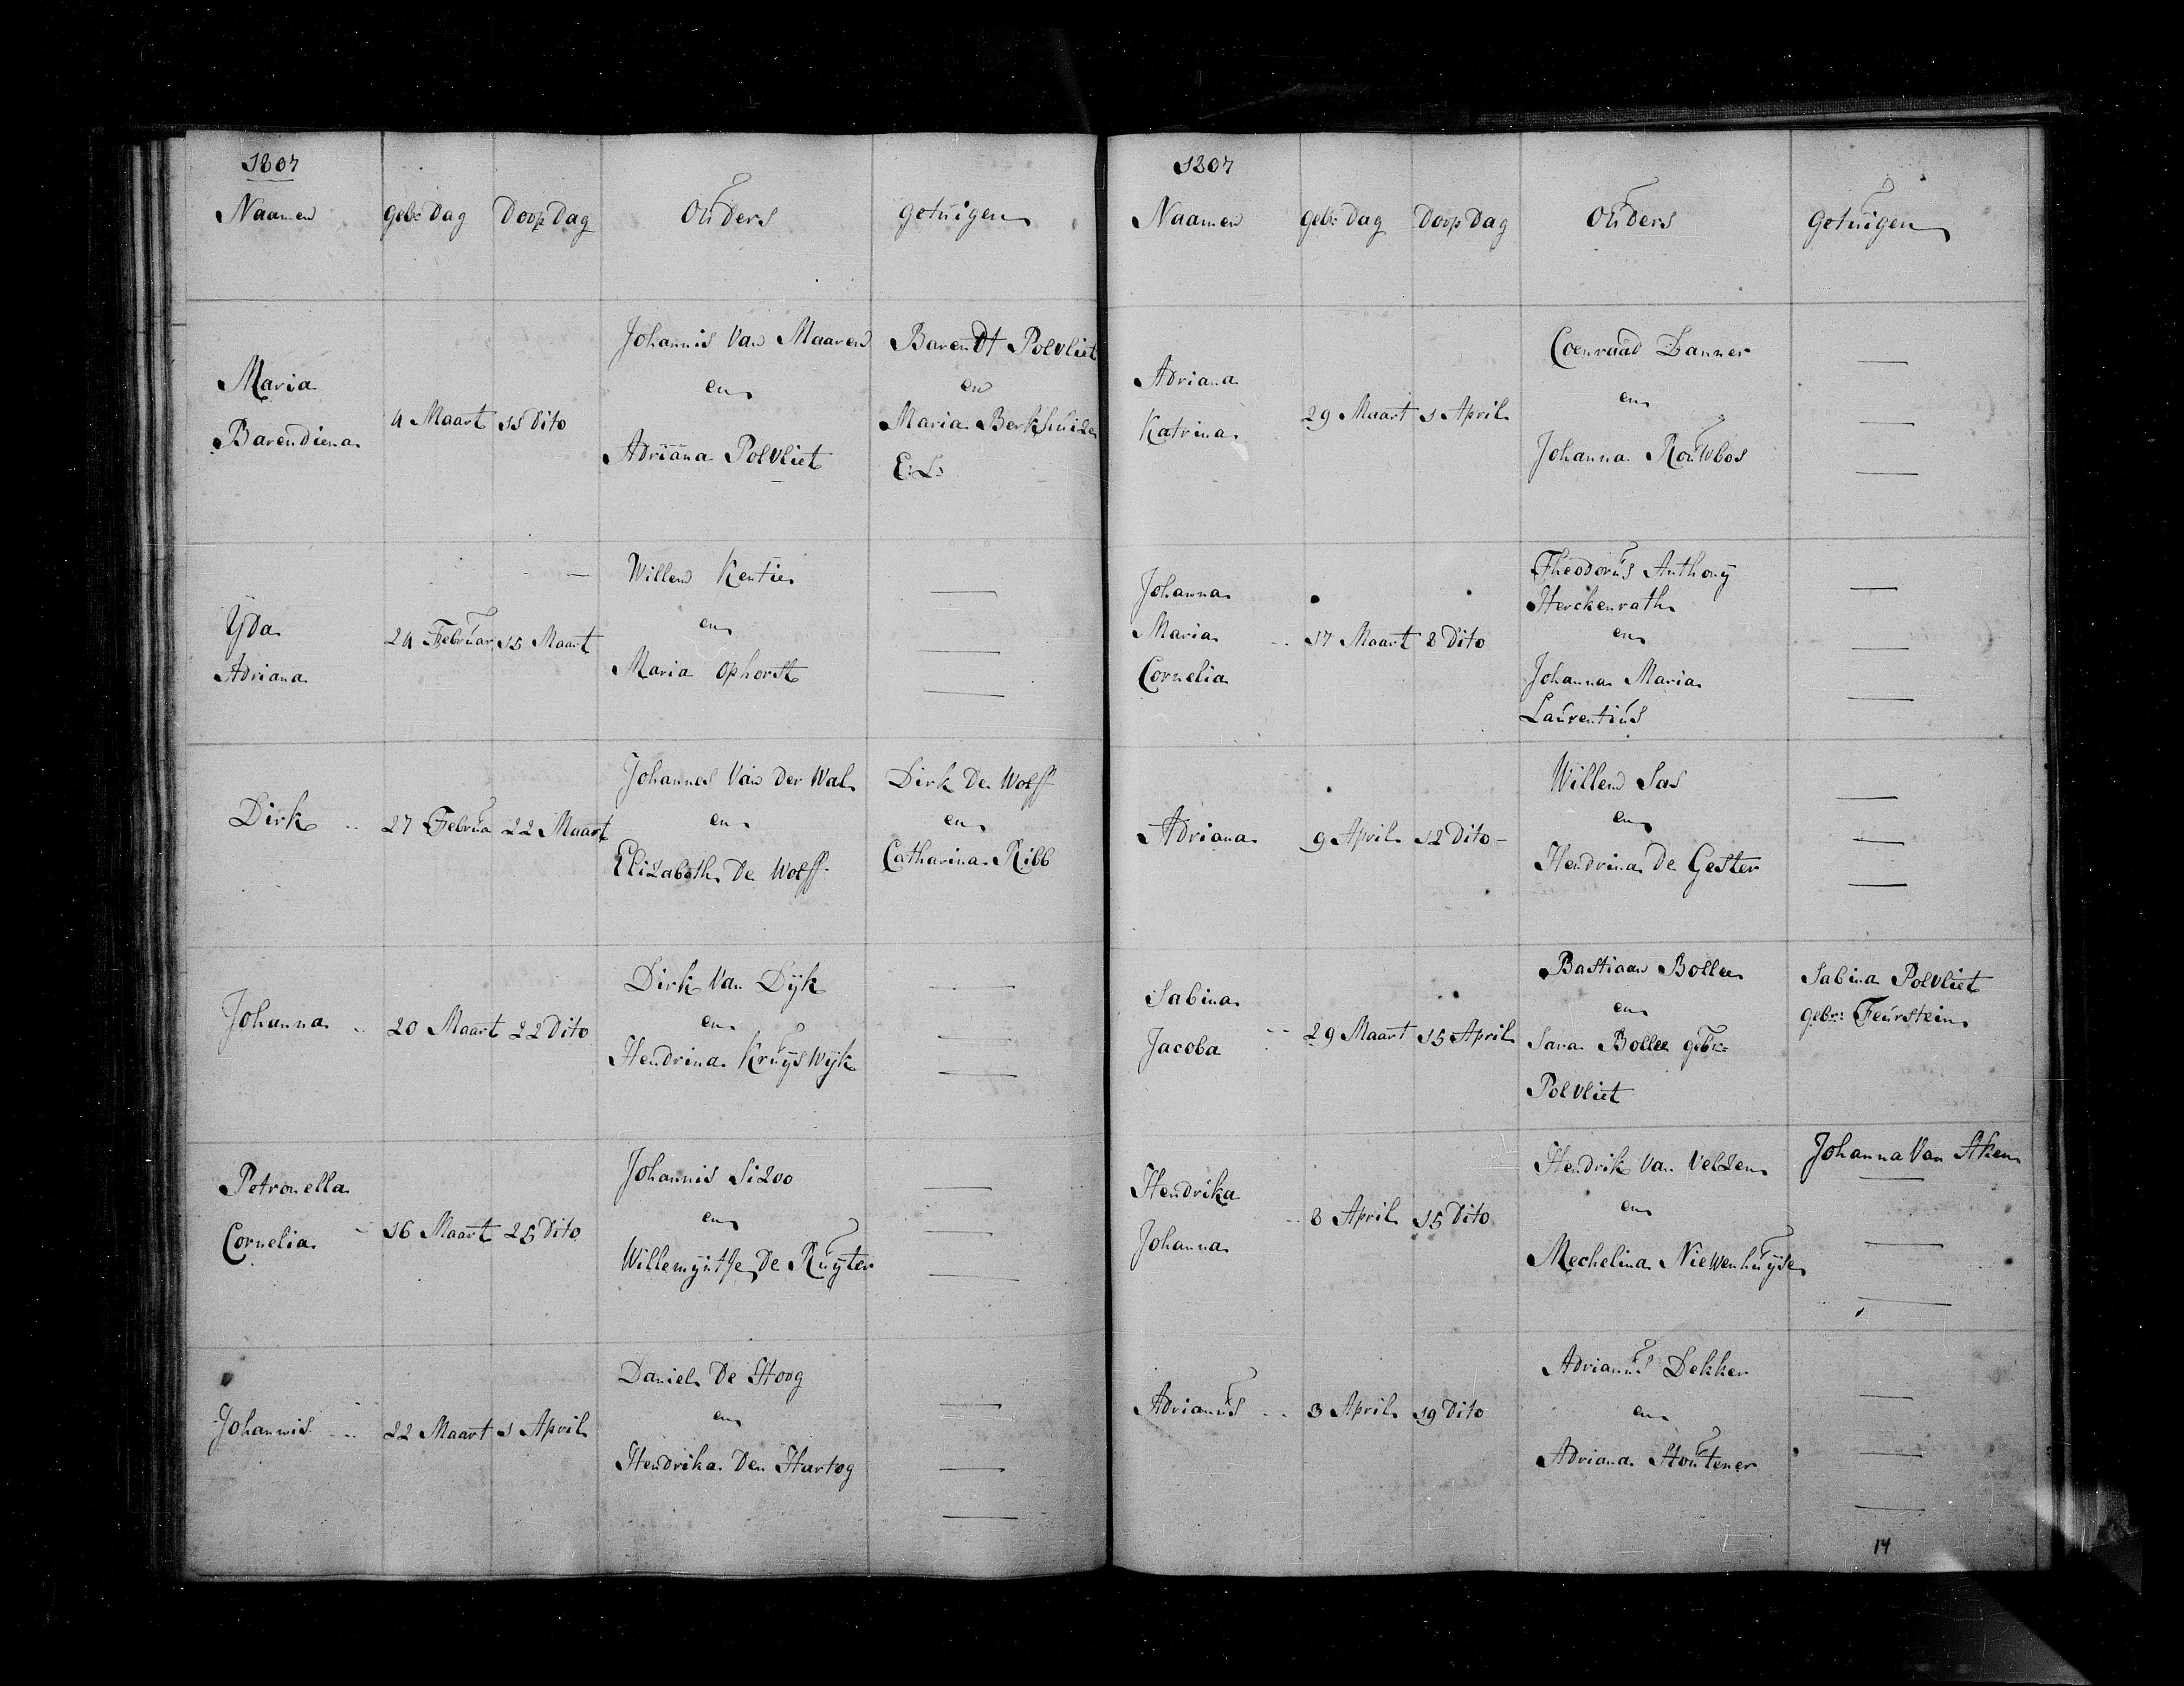 1807
Naamen geb: Dag Doop Dag Ouders Getuigen
Johannis Van Maaren Barendt Polvliet
Maria en en
4 Maart 11 Dito Maria Berkhuize
Barendiena Adriana Polvliet E: L:
Willem Kentie
Yda en
24 Februar 15 Maart
Adriana Maria Ophorst
Johannes Van der Wal Dirk De Wolff
Dirk 27 Februa 22 Maart en en
Elizabeth De Wolff Catharina Ribb
Dirk Van Dijk
Johanna 20 Maart 22 Dito en
Hendrina Kruijswijk
Petronella Johannis Sizoo
16 Maart 25 Dito en
Cornelia Willemijntje De Ruijter
Daniel De Hoog
Johannis 22 Maart 1 April en
Hendrika Den Hartog
1807
Naamen geb: Dag Doop Dag Ouders Getuigen
Coenraad Danner
Adriana en
29 Maart 1 April
Katrina Johanna Rouwbos
Theodorus Anthonij
Johanna Herckenrath
Maria 17 Maart 8 Dito en
Cornelia Johanna Maria
Laurentius
Willem Sas
Adriana 9 April 12 Dito en
Hendrina De Gester
Bastiaan Bollee Sabina Polvliet
Sabina en gebr: Feurstein
29 Maart 15 April Sara Bollee gebr:
Jacoba Polvliet
Hendrik Van Velzen Johanna Van Aken
Hendrika en
8 April 15 Dito
Johanna Mechelina Niewenhuijse
Adrianus Dekker
Adrianus 3 April 19 Dito en
Adriana Houtener
14